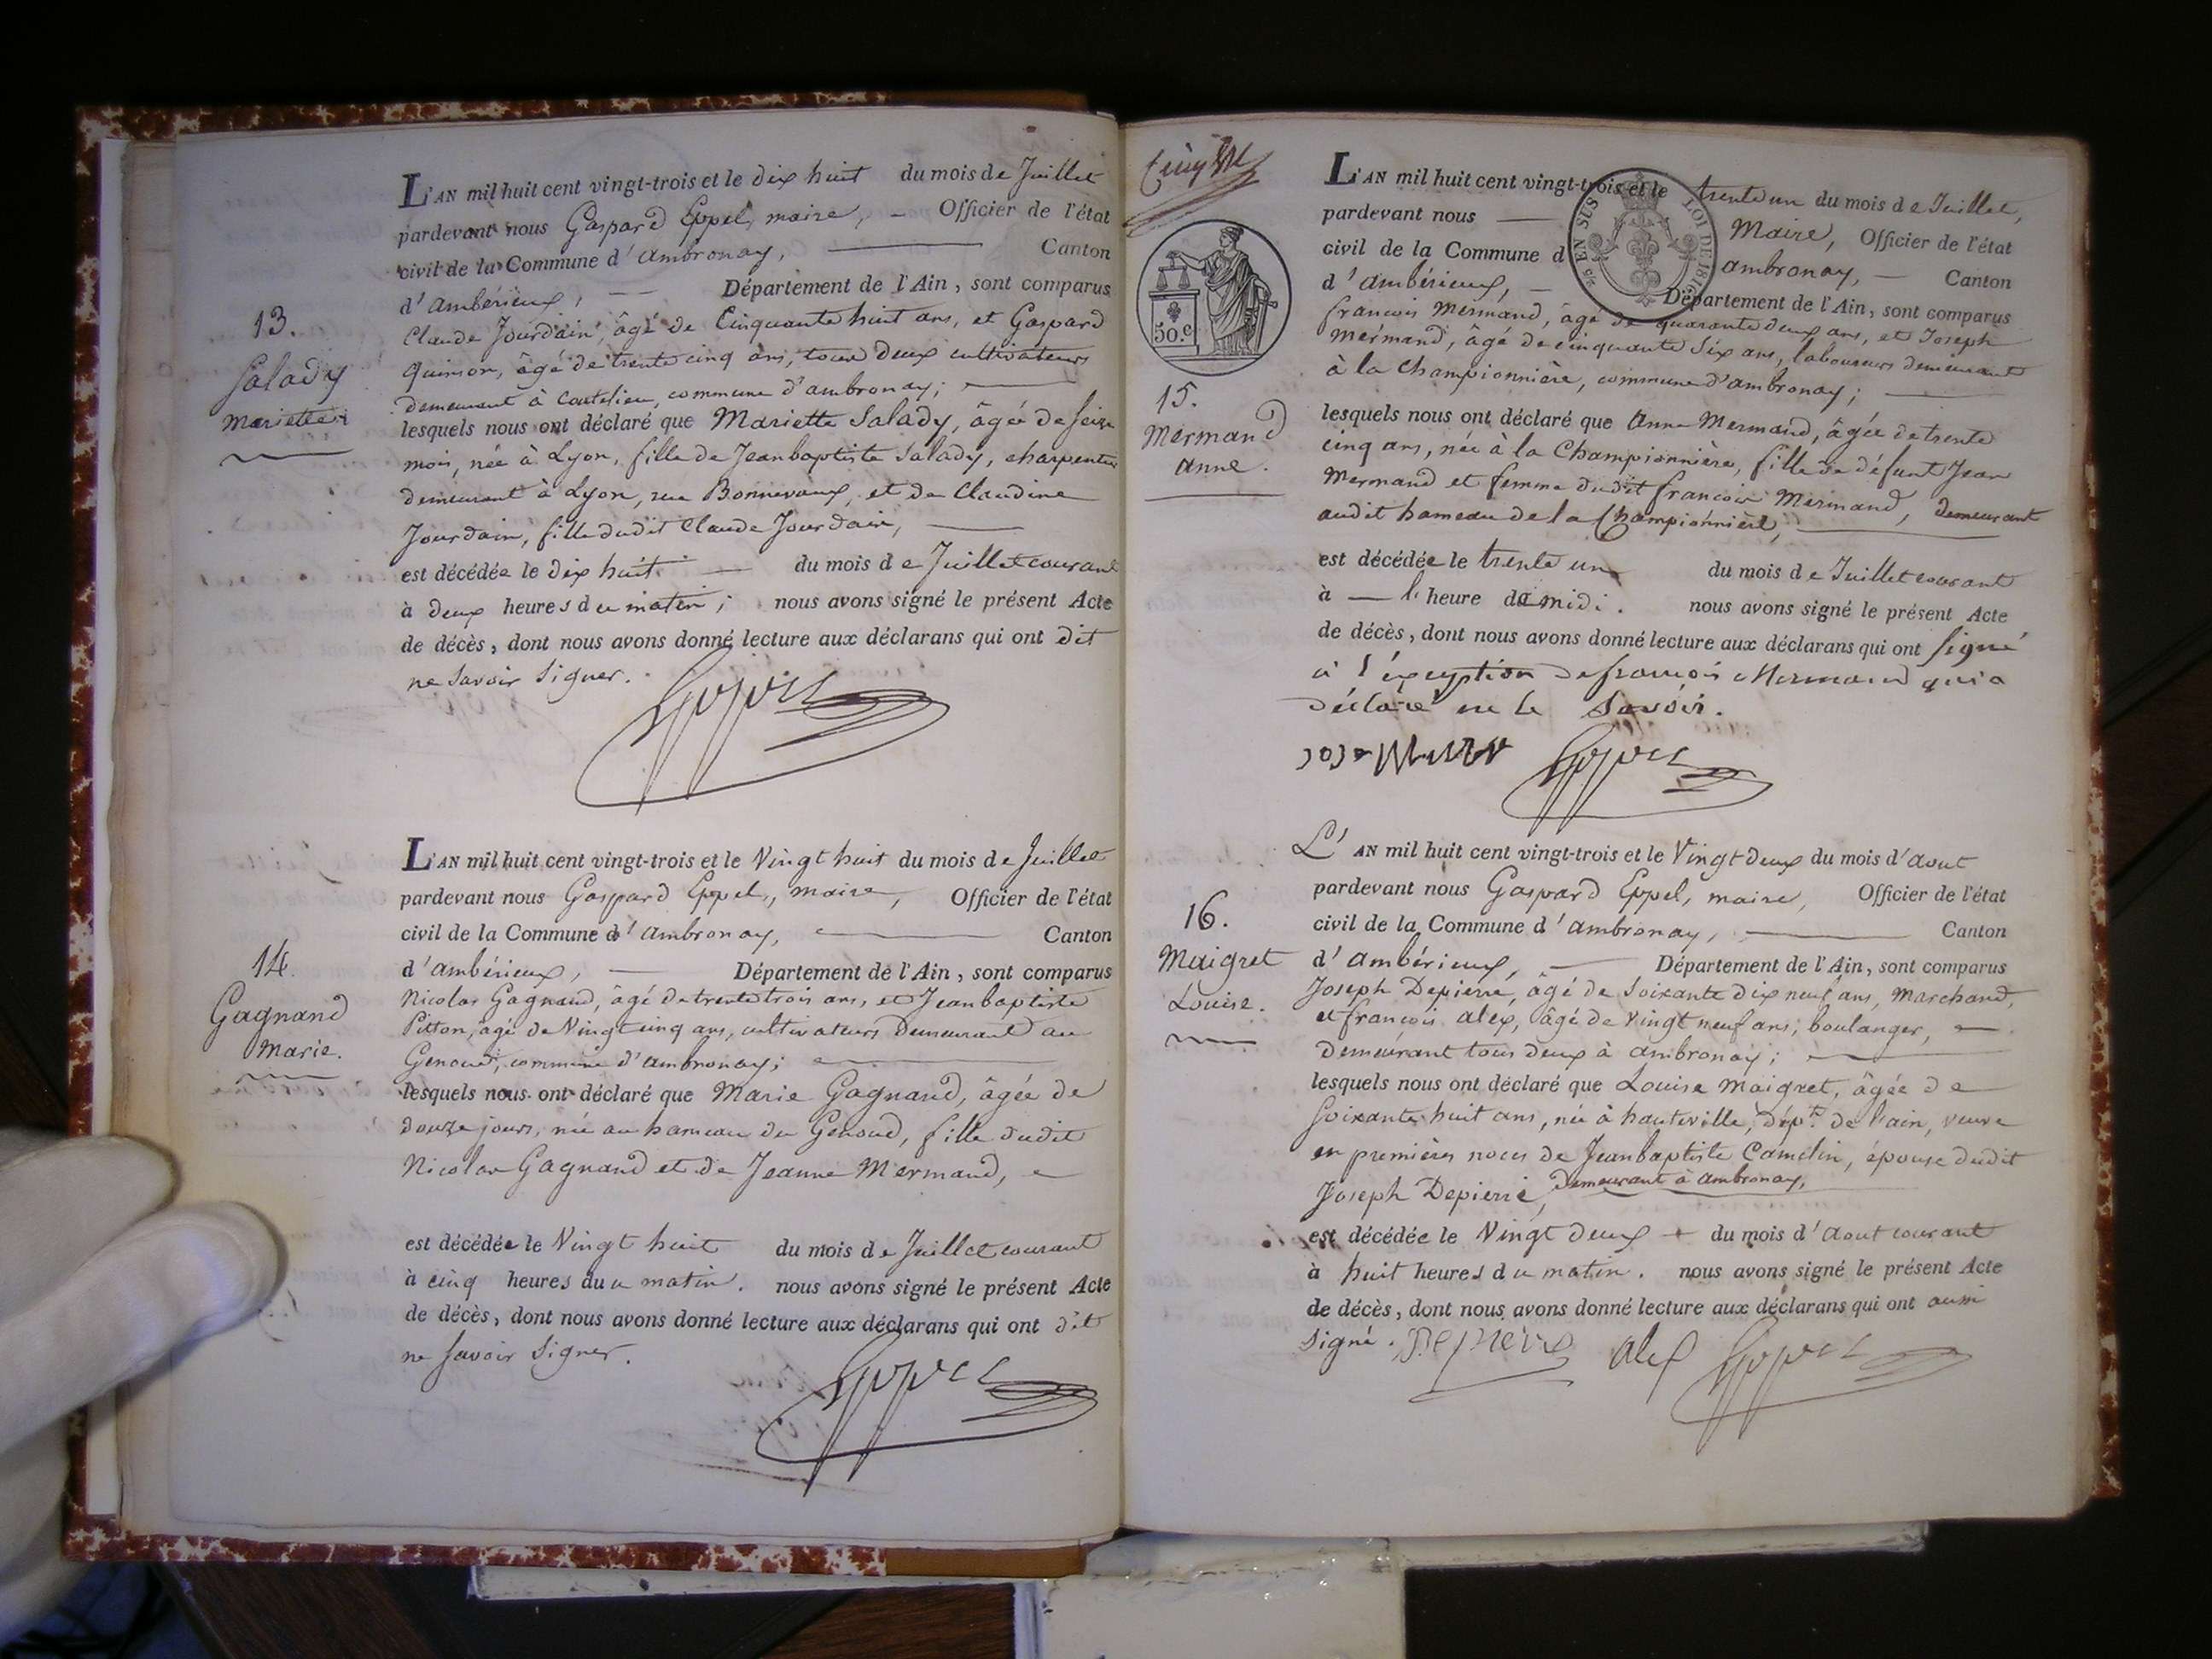 13.
Salady
Mariette
L'AN mil huit cent vingt-trois et le dix huit du mois de Juillet
pardevant nous Gaspard Eppel, maire, Officier de l'état
civil de la Commune d'ambronay, Canton
d'ambérieux, Département de l'Ain, sont comparus
Claude Jourdain, âgé de Cinquante huit ans, et Gaspard
Quinson, âgé de trente cinq ans, tous deux cultivateurs
demeurant à Coutelieu, commune d'ambronay;
lesquels nous ont déclaré que Mariette Salady, âgée de seize
mois, née à Lyon, fille de Jeanbaptiste Salady, charpentier
demeurant à Lyon, rue Bonnevaux, et de Claudine
Jourdain, fille dudit Claude Jourdain,
est décédée le dix huit du mois de Juillet courant
à deux heures du matin; nous avons signé le présent Acte
de décès, dont nous avons donné lecture aux déclarans qui ont dit
ne savoir signer.
Eppel
14.
Gagnand
Marie.
L'AN mil huit cent vingt-trois et le Vingt huit du mois de Juillet
pardevant nous Gaspard Eppel, maire, Officier de l'état
civil de la Commune d'ambronay, Canton
d'ambérieux, Département de l'Ain, sont comparus
Nicolas Gagnand, âgé de trente trois ans, et Jeanbaptiste
Pitton, âgé de Vingt cinq ans, cultivateurs demeurant au
Genoud, commune d'ambronay;
lesquels nous ont déclaré que Marie Gagnand, âgée de
douze jours, née au hameau du Genoud, fille dudit
Nicolas Gagnand et de Jeanne Mermand,
est décédée le Vingt huit du mois de Juillet courant
à cinq heures du matin. nous avons signé le présent Acte
de décès, dont nous avons donné lecture aux déclarans qui ont dit
ne savoir signer.
Eppel
50.c
15.
Mermand
anne.
EN SUS LOI DE 1816
L'AN mil huit cent vingt-trois et le trente un du mois de Juillet,
pardevant nous Maire, Officier de l'état
civil de la Commune d ambronay, Canton
d'ambérieux, Département de l'Ain, sont comparus
francois Mermand, âgé de quarante deux ans, et Joseph
Mermand, âgé de cinquante six ans, laboureurs demeurant
à la Championnière, commune d'ambronay;
lesquels nous ont déclaré que Anne Mermand, âgée de trente
cinq ans, née à la Championnière, fille de défunt Jean
Mermand et femme dudit francois Mermand, demeurant
audit hameau de la Championnière,
est décédée le trente un du mois de Juillet courant
à l'heure de midi. nous avons signé le présent Acte
de décès, dont nous avons donné lecture aux déclarans qui ont signé
à l'exception de francois Mermand qui a
déclaré ne le savoir.
Eppel
16.
Maigret
Louise.
L'AN mil huit cent vingt-trois et le Vingt deux du mois d'aout
pardevant nous Gaspard Eppel, maire, Officier de l'état
civil de la Commune d'ambronay, Canton
d'ambérieux, Département de l'Ain, sont comparus
Joseph Depierre, âgé de soixante dix neuf ans, Marchand,
et francois alex, âgé de Vingt neuf ans, boulanger,
demeurant tous deux à ambronay;
lesquels nous ont déclaré que Louise Maigret, âgée de
soixante huit ans, née à hauteville, dépt. de l'ain, veuve
en premières noces de Jeanbaptiste Camelin, épouse dudit
Joseph Depierre, demeurant à ambronay,
est décédée le Vingt deux du mois d'aout courant
à huit heures du matin. nous avons signé le présent Acte
de décès, dont nous avons donné lecture aux déclarans qui ont aussi
signé. Depierre alex Eppel